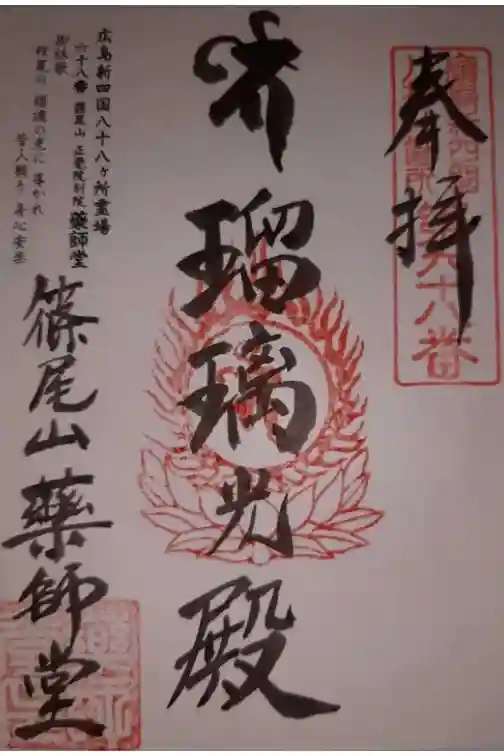 奉拝
第六十八番
瑠璃光殿
広島新四国八十八ヶ所霊場
六十八番 篠尾山 正覚院別院 薬師堂
御詠歌
篠尾山 瑠璃の光に 導かれ
皆人願う 身心安楽
篠尾山薬師堂